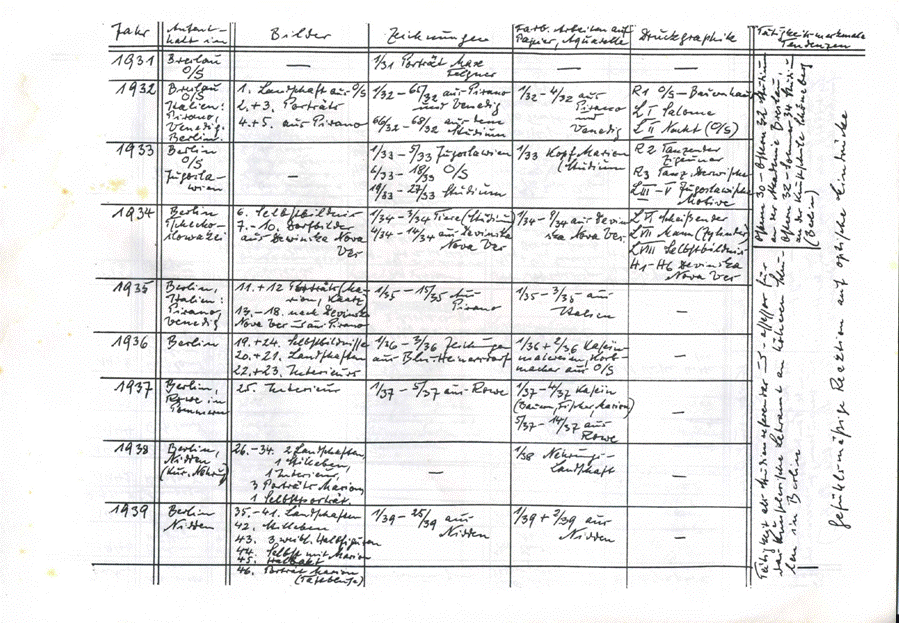 Jahr
Aufent-
halt in
Bilder
Zeichnungen
Farb. Arbeiten auf
Papier, Aquarelle
Druckgraphik
Tätigkeitsmerkmale
Tendenzen
1931
Breslau
O/S
—
1/31 Porträt Max
—
—
1932
Breslau
O/S
Italien:
Pirano,
Venedig.
Berlin.
1. Landschaft aus O/S
2.+3. Porträts
4.+5. aus Pirano
1/32 – 65/32 aus Pirano
und Venedig
66/32 – 68/32 aus dem
Studium
1/32 – 4/32 aus
Pirano
und
Venedig
R1 O/S – Bauernhaus
L I Salome
L II Nackt (O/S)
1933
Berlin
O/S
Jugosla-
wien
—
1/33 – 5/33 Jugoslawien
6/33 – 18/33 O/S
19/33 – 27/33 Studium
1/33 Kopf Marion
(Studium)
R2 Tanzender
Zigeuner
R3 Tanz Derwische
L III – V Jugoslawische
Motive
1934
Berlin
Tschecho-
slowakei
6. Selbstbildnis
7.–10. Dorfbilder
aus Devinska Nova
Ves
1/34 – 3/34 Tiere (Studium)
4/34 – 14/34 aus Devinska
Nova Ves
1/34 – 9/34 aus Devin-
ska Nova Ves.
L VI
L VII Mann
L VIII Selbstbildnis
H1–H6 Devinska
Nova Ves
1935
Berlin,
Italien:
Pirano,
Venedig
11.+12 Porträts (Ma-
rion, Kaatz)
13.–18. nach Devinska
Nova Ves u. aus Pirano
1/35 – 15/35 aus
Pirano
1/35 – 3/35 aus
Italien
—
1936
Berlin
19.+24. Selbstbildnisse
20.+21. Landschaften
22.+23. Interieurs
1/36 – 3/36 Zeichnungen
aus Bln-Heinersdorf
1/36 + 2/36 Kasein
malereien, Korb-
macher aus O/S
—
1937
Berlin,
Rowe in
Pommern
25. Interieur
1/37 – 5/37 aus Rowe
1/37 – 4/37 Kasein
(Bauern, Fischer, Marion)
5/37 – 14/37 aus
Rowe
—
1938
Berlin,
Nidden
(Kur. Nehrg)
26.–34. 2 Landschaften,
1 Stilleben,
1 Interieur,
3 Porträts Marion,
1 Selbstporträt
—
1/38 Nehrungs-
Landschaft
—
1939
Berlin
Nidden
35.–41. Landschaften
42. Stilleben
43. 3 weibl. Halbfiguren
44. Selbst mit Marion
45. Halbakt
46. Porträt Marion
1/39 – 25/39 aus
Nidden
1/39 + 2/39 aus
Nidden
—
Ostern 30 – Ostern 32 Studium
an der Akademie Breslau,
Ostern 32 – Sommer 34 Studium
an der Kunstschule Schöneberg
(Berlin)
Tätigkeit als Studienreferendar u.
das künstlerische Lehramt an höheren Schu-
len in Berlin
Gefühlsmäßige Reaktion auf optische Eindrücke